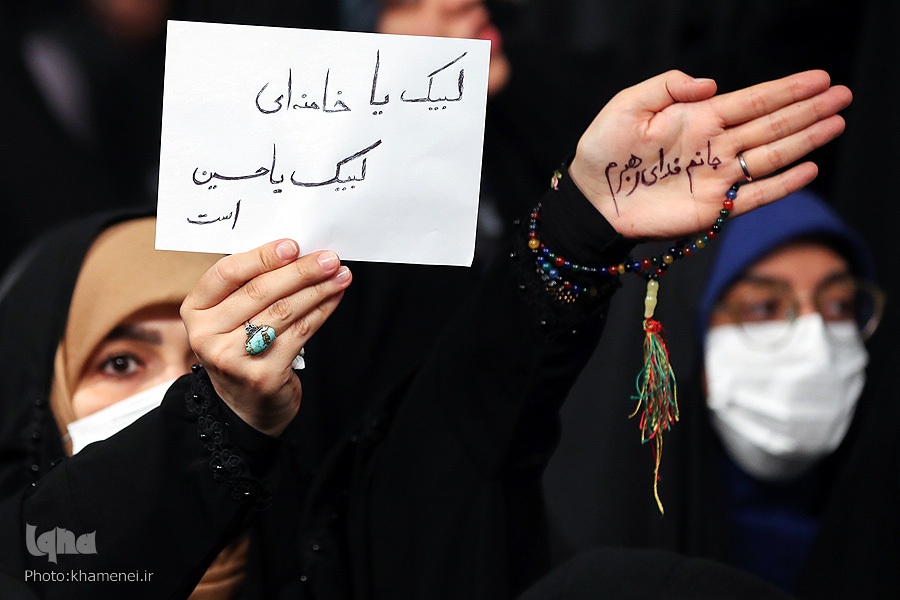 لبیک یا خامنه‌ای
لبیک یا حسین
است
جانم فدای رهبرم
iqna
Photo:khamenei.ir